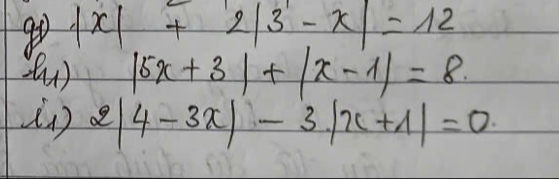 g1) |x| + 2|3 - x| = 12
h1) |5x + 3| + |x - 1| = 8.
i1) 2|4 - 3x| - 3.|x + 1| = 0.